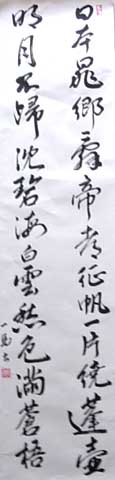 日本晁卿辭帝都征帆一片繞蓬壺
明月不歸沈碧海白雲愁色滿蒼梧